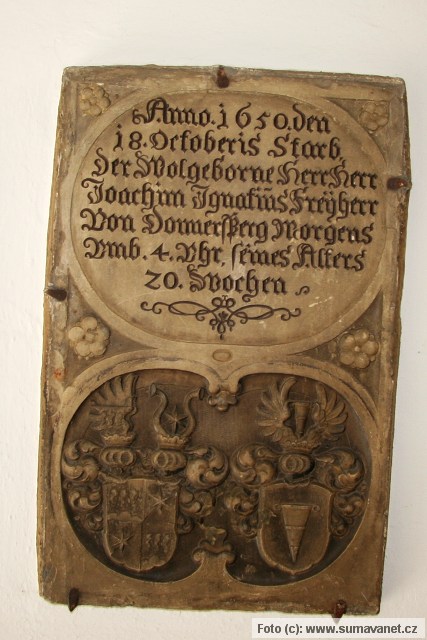 Anno. 1650. den
18. Octoberis Starb,
der Wolgeborne Herr Herr
Joachim Ignatiŭs Freÿherr
Von Donnersperg Morgens
Vmb. 4. Vhr, seines Alters
20. Wochen
Foto (c): www.sumavanet.cz